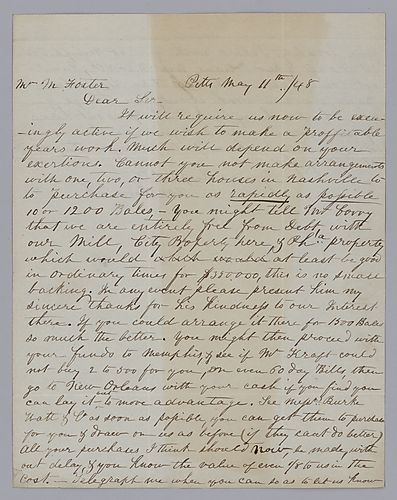 Mr M Foster Pitts May 11th /48
Dear Sir-
It will require us now to be exce-
-ingly active if we wish to make a proffitable
years work. Much will depend on your
exertions. Cannot you not make arrangements
with one, two, or three houses in Nashville to
to purchase for you as rapidly as possible
10 or 1200 Bales,- You might tell Mr
that we are entirely free from Debt, with
our Mill, City Property here & Phia property
which would at least be good
in ordinary times for $350000, this is no small
backing. In any event please present him my
sincere thanks for his kindness to our Interest
there. If you could arrange it there for 1500 Bales
so much the better. You might then proceed with
your funds to Memphis & see if Mr Kraft could
not buy 2 to 500 for you on even 60 day Bills, then
go to New Orleans with your cash if you find you
can lay it out to move advantage. See Messrs Burk
Watt & Co as soon as possible, you can get them to purchase
for you & draw on us as before (if they cant do better)
All your purchases I think should now be made, with
out delay, & you know the value of even 1/8 to us in the
cost.- Telegraph me when you can so as to let us know